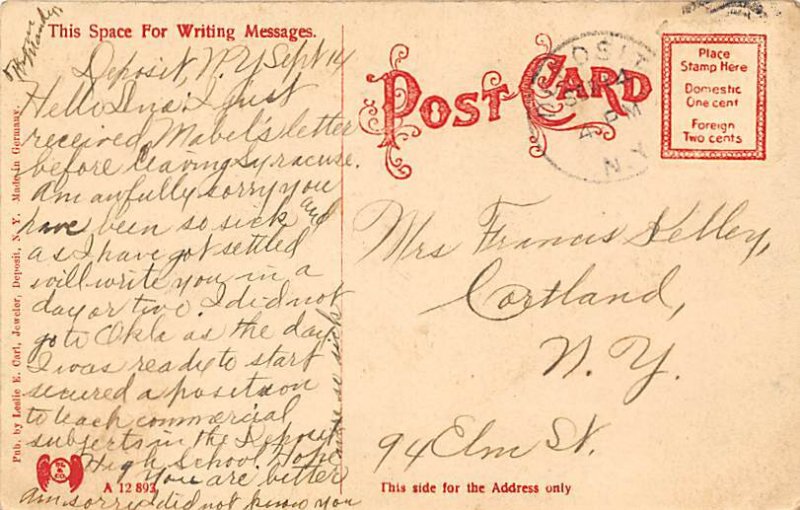 This Space For Writing Messages.
Deposit, N.Y. Sept 14
Hello Ina: I just
received Mabel's letter
before leaving Syracuse.
am awfully sorry you
have been so sick and
as I have got settled
will write you in a
day or two. I did not
go to Okla as the day
I was ready to start
secured a position
to teach commercial
subjects in the Deposit
High School. Hope
you are better
am sorry did not know you
were so sick
POST CARD
Place
Stamp Here
Domestic
One cent
Foreign
Two cents
DEPOSIT
SEP 14
4 PM
N.Y.
Mrs Francis Kelley,
Cortland,
N.Y.
94 Elm St.
Pub. by Leslie E. Carl, Jeweler, Deposit, N. Y. Made in Germany.
A 12 893
This side for the Address only